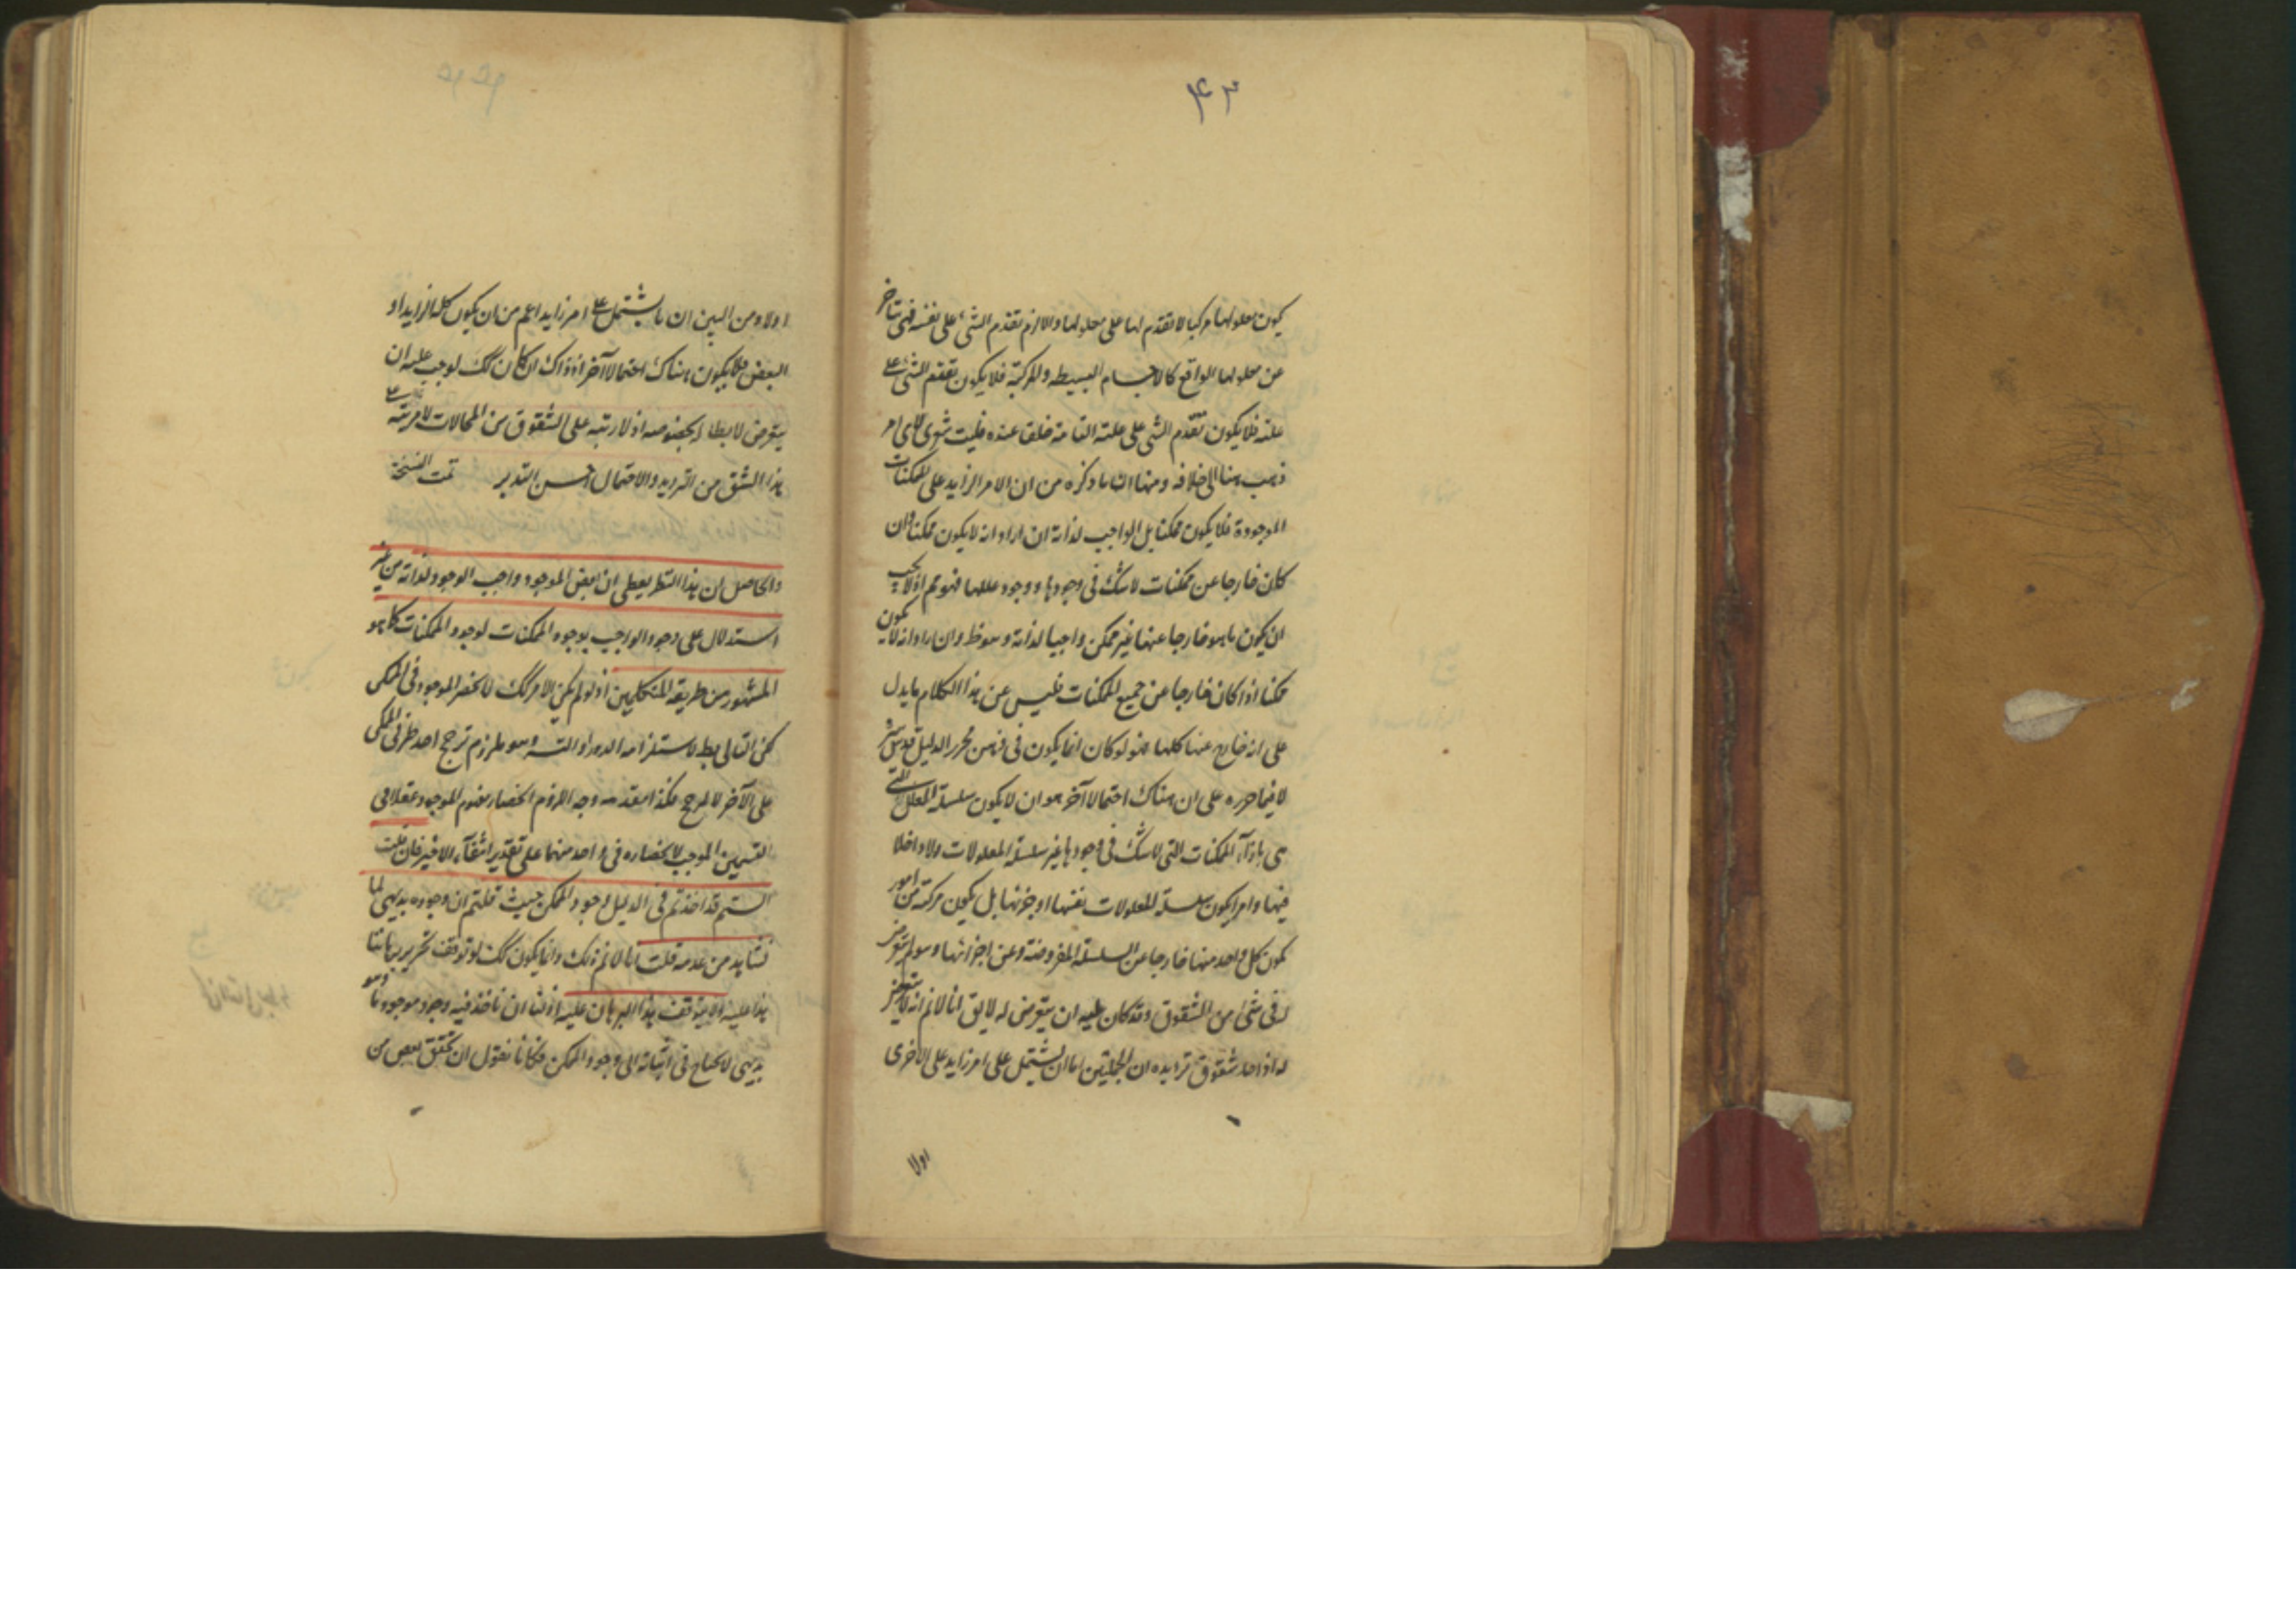 ۴۳
يكون معلولها مركبا لا تقدم لها على معلولها والا لزم تقدم الشئ على نفسه فهى تتاخر
عن معلولها الواقع كالاجسام البسيطه والمركبة فلا يكون تقدم الشئ على
علته فلا يكون تقدم الشى على علته التامة خلفا عنده فليت شعرى لاى امر
ذهب هنا الى خلافه ومنها ان ما ذكره من ان الامر الزايد على الممكنات
الموجودة فلا يكون ممكنا بل الواجب لذاته ان اراد انه لا يكون ممكنا وان
كان خارجا عن ممكنات لا شك فى وجودها ووجود عللها فهو مم اذ لا يجب
ان يكون ما هو خارجا عنها غير ممكن واجبا لذاته وهو ظ وان اراد انه لا يكون
ممكنا اذا كان خارجا عن جميع الممكنات فليس عن هذا الكلام ما يدل
على انه خارج عنها كلها فهو لو كان انما يكون فى ذهن محرر الدليل قدس سره
لا فيما حرره على ان هناك احتمالا آخر هو ان لا يكون سلسلة العلل التى
هى بازاء الممكنات التى لا شك فى وجودها غير سلسلة المعلولات ولا داخلا
فيها وامرا يكون سلسلة المعلولات نفسها او جزئها بل يكون مركبة من امور
يكون كل واحد منها خارجا عن السلسلة المفروضة وعن اجزائها وهو لم يتعرض
له فى شئ من الشقوق وقد كان عليه ان يتعرض له لا يق انا لا نم انه لا يتعرض
له اذ احد شقوق ترديده ان الجملتين اما ان يشتمل على امر زايد على الاخرى
اولا
اولا ومن البين ان ما يشتمل على امر زايد اعم من ان يكون كلها زايدا او
البعض فلا يكون هناك احتمالا آخر اذ ذاك ان كان كك لوجب عليه ان
يتعرض لابطاله بخصوصه اذ لا رتبه على الشقوق من المحالات لا مرتبة على
هذا الشق من الترديد والاحتمال احسن التدبر تمت النسخة
والحاصل ان هذا النظر يعطى ان بعض الموجود واجب الوجود لذاته من غير
استدلال على وجود الواجب بوجود الممكنات لوجود الممكنات كما هو
المشهور من طريقة المتكلمين اذ لو لم يكن الامر كك لانحصر الموجود فى الممكن
لكن التالى بط لاستلزامه الدور او التسـ وهو ملزوم ترجح احد طرفى الممكن
على الآخر لا لمرجح فكذا مقدمه وجه اللزوم انحصار مفهوم الموجود عقلا فى
القسمين الموجب لانحصاره فى واحد منهما على تقدير انتفاء الاخير فان قلت
الستم قد اخذتم فى الدليل وجود الممكن حيث قلتم ان وجوده بديهى لما
نشاهد من عدمه قلت انا لا نم ذلك وانما يكون كك لو توقف تحرير برهاننا
هذا عليه ولا يتوقف هذا البرهان عليه اذ لنا ان ناخذ فيه وجود موجود ما وهو
بديهى لا يحتاج فى اثباته الى وجود الممكن فكانا نقول ان تحقق بعض من